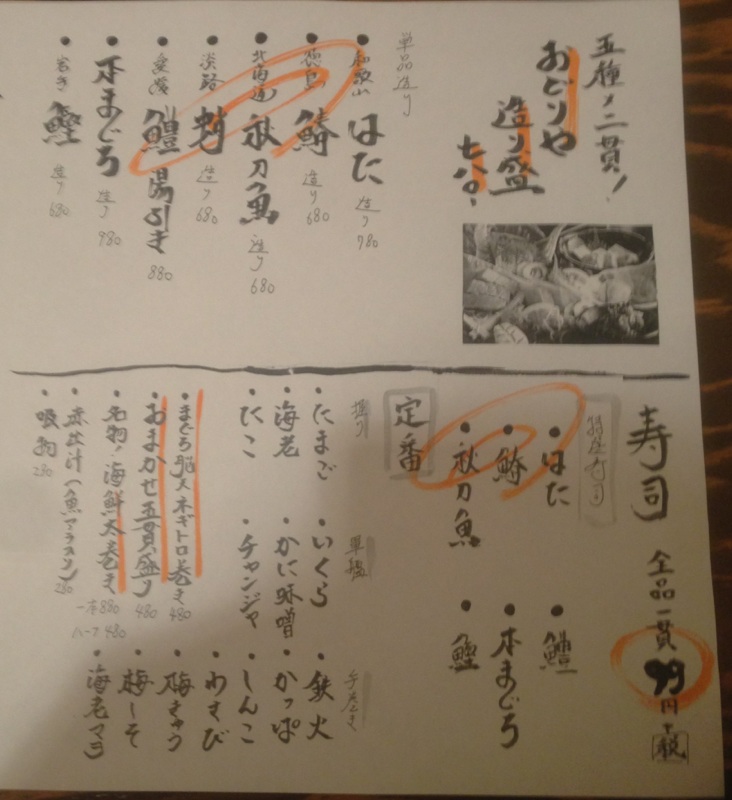 五種メ二貫!
おどりや
造り盛
七八〇、
単品造り
和歌山 はた 造り 980
徳島 鰆 造り 680
北海道 秋刀魚 造り 680
淡路 蛸 造り 680
愛媛 鱧 湯引き 880
本まぐろ 造り 980
鰹 造り 680
寿司 全品一貫 99円+税
特選寿司
はた
鰆
秋刀魚
鱧
本まぐろ
鰹
定番
握り
たまご
海老
たこ
軍艦
いくら
かに味噌
チャンジャ
手巻き
鉄火
かっぱ
しんこ
わさび
梅きゅう
梅しそ
海老マヨ
まぐろ脳天ネギトロ巻き 480
おまかせ五貫盛り 480
名物!海鮮太巻き 一本880 ハーフ480
赤出汁 280
吸物 280